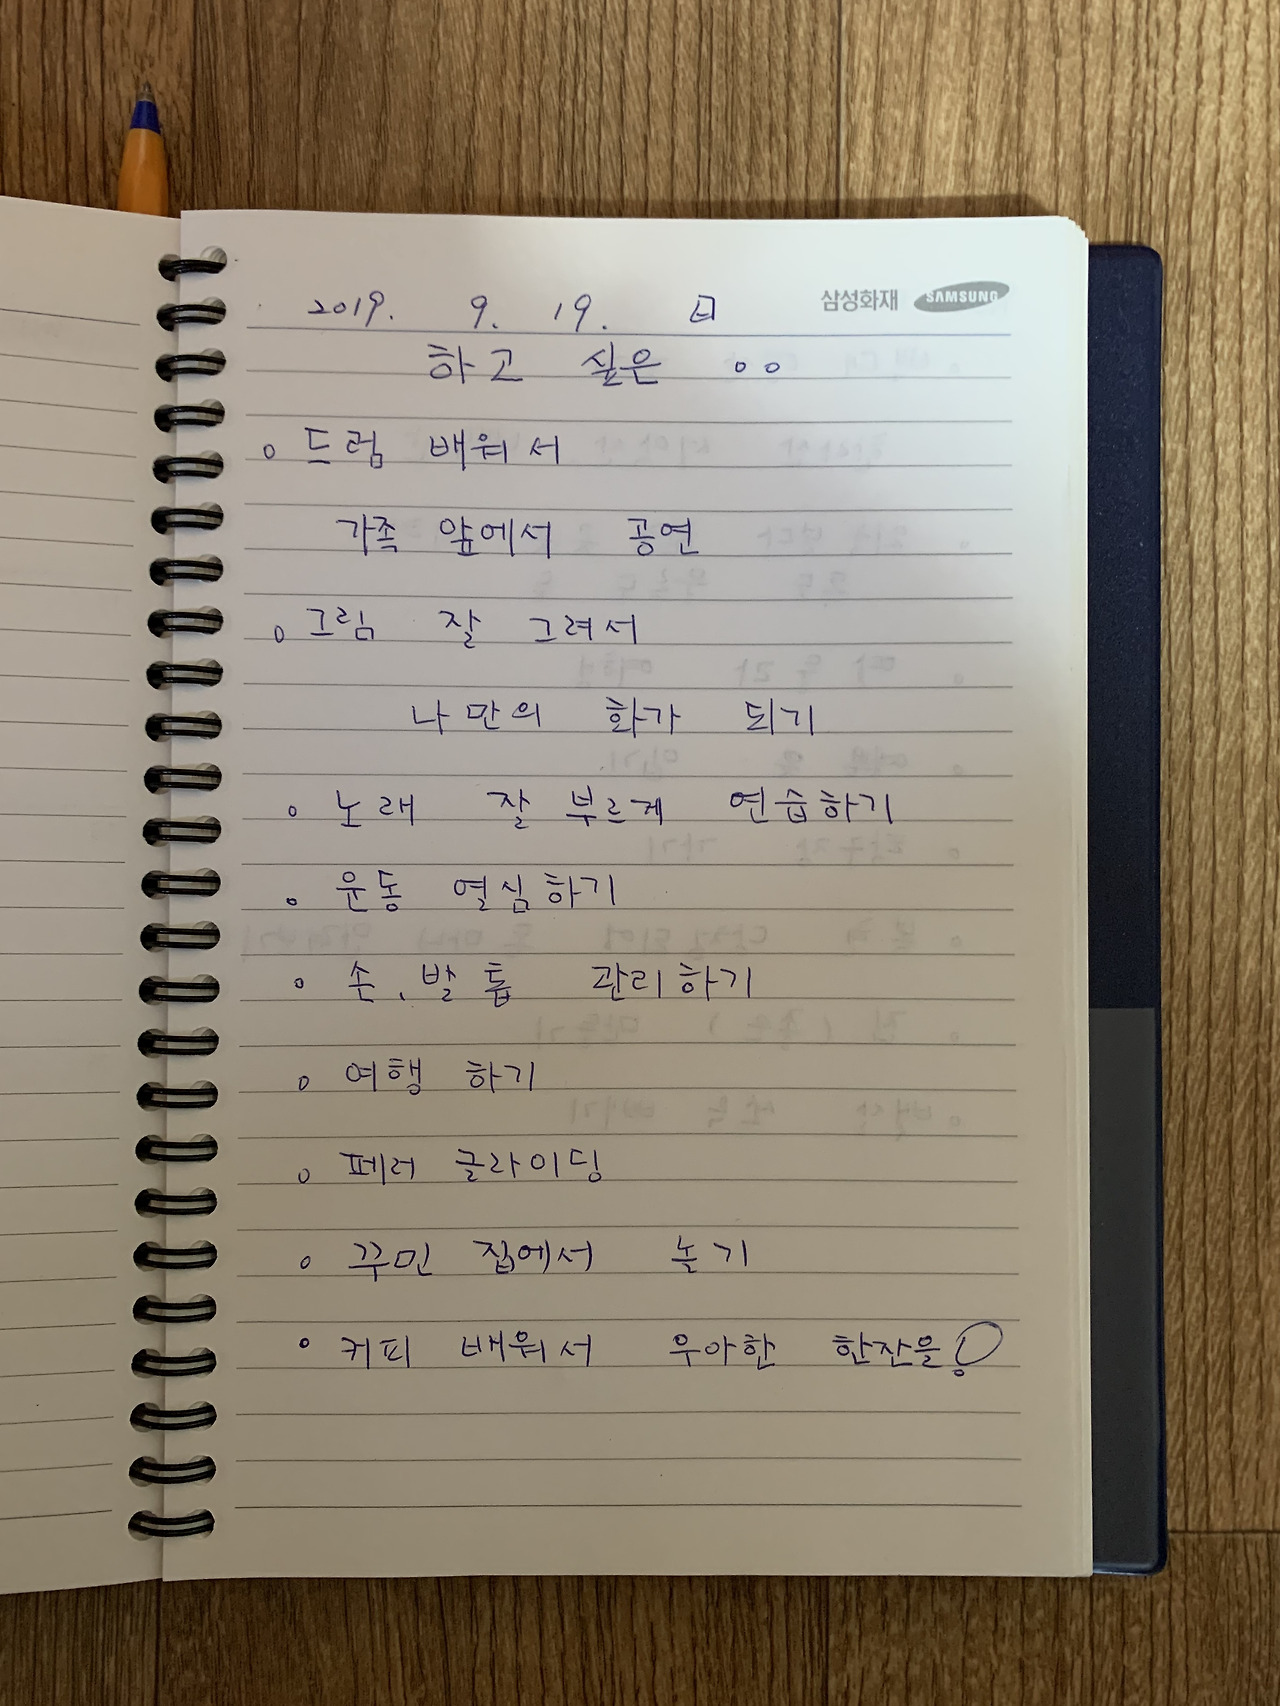 2019. 9. 19. 日
삼성화재 SAMSUNG
하고 싶은 ㅇㅇ
드럼 배워서
가족 앞에서 공연
그림 잘 그려서
나만의 화가 되기
노래 잘 부르게 연습하기
운동 열심하기
손, 발톱 관리하기
여행 하기
페러 글라이딩
꾸민 집에서 놀기
커피 배워서 우아한 한잔을!